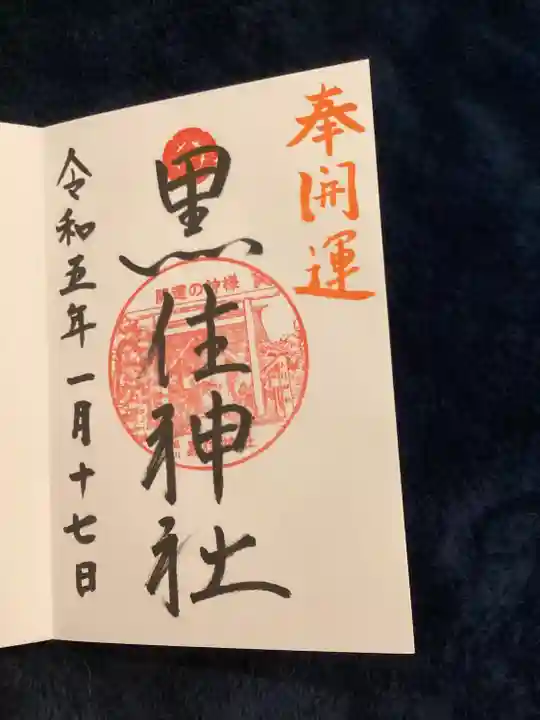 奉開運
黒住神社
開運の神様
令和五年一月十七日